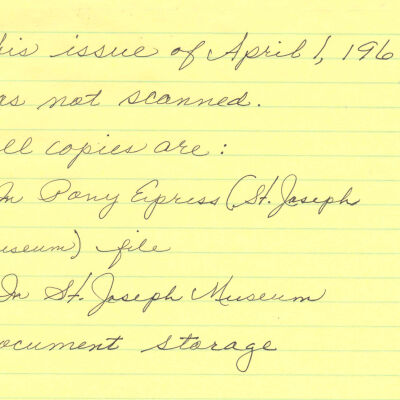 his issue of April 1, 196
as not scanned.
ll copies are:
In Pony Express (St. Joseph
useum) file
In St. Joseph Museum
ocument storage